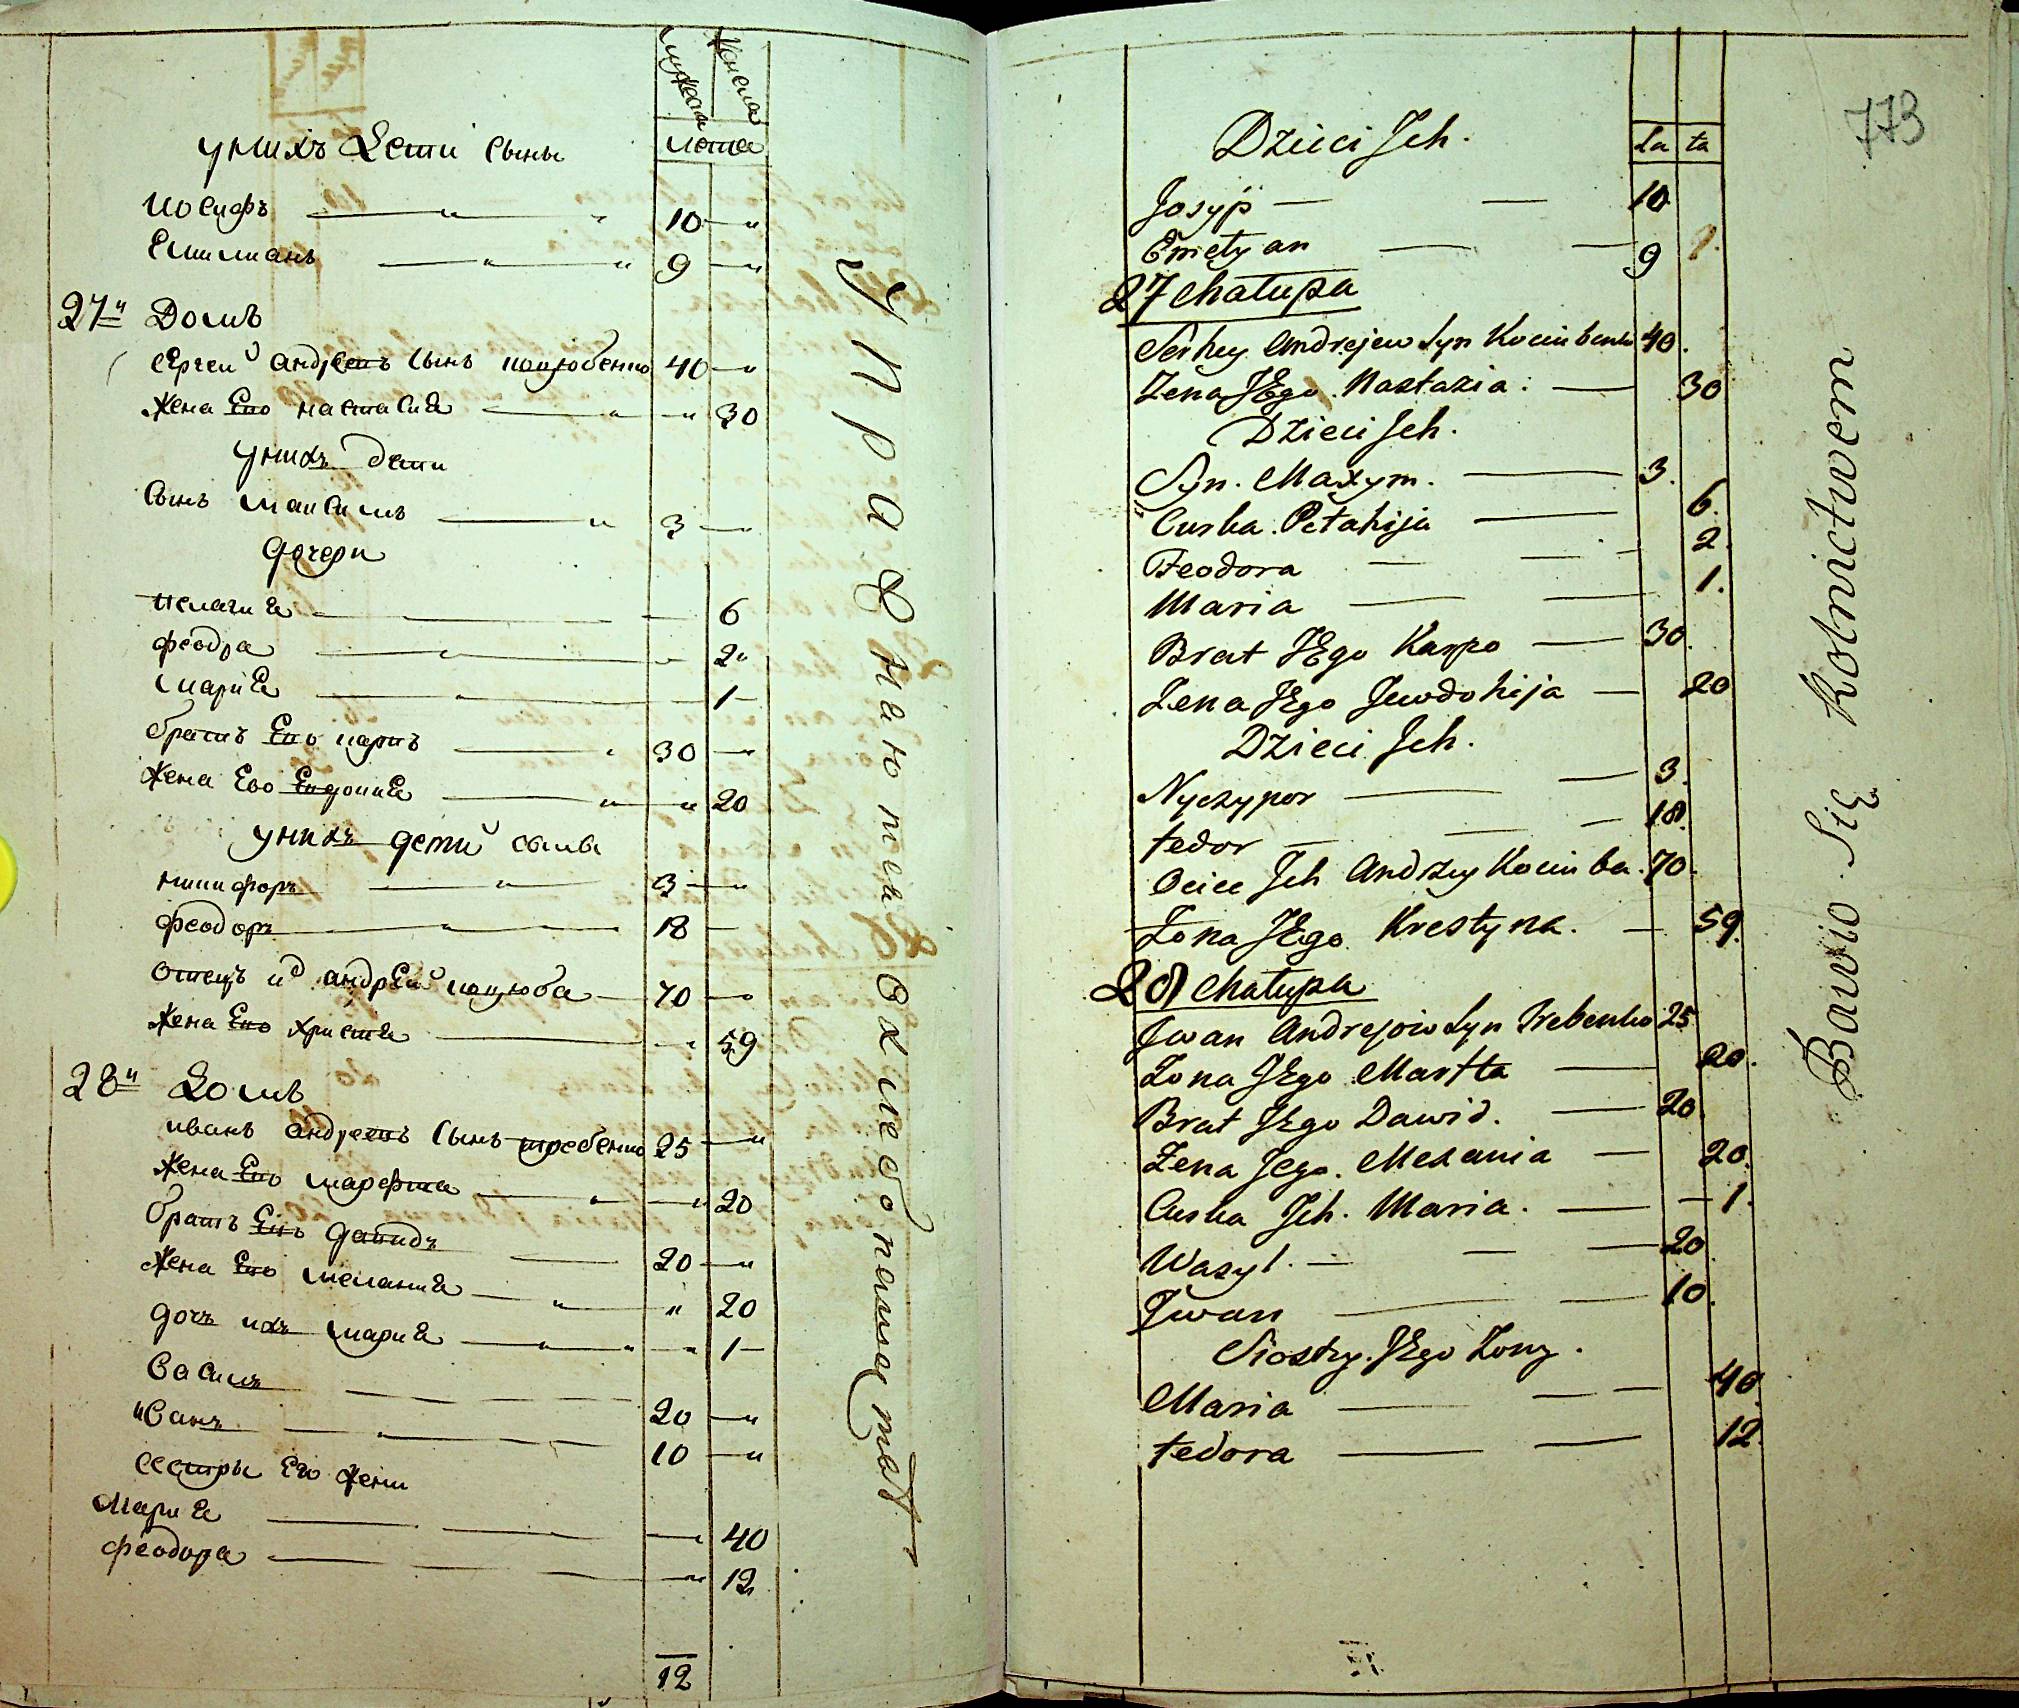 мужеска женска
лета
у нихъ Дети сыны
иосифъ 10
Емилианъ 9
27й Домъ
сергей андреевъ сынъ коцюбенко 40
жена Ево настасия 30
у нихъ дети
сынъ максимъ 3
дочери
пелагия 6
феодра 2
мария 1
братъ Ево карпъ 30
жена Ево Евдокия 20
у нихъ дети сыны
никифоръ 3
феодоръ 18
отецъ ихъ андрей коцюба 70
жена Ево христя 59
28й Домъ
иванъ андреевъ сынъ гребенко 25
жена Ево марфта 20
братъ Ево давидъ 20
жена Ево мелания 20
дочъ ихъ мария 1
Василь 20
иванъ 10
сестры Его жени
Мария 40
феодора 12
12
Упражнаются в хлебопашестве
773
Dzieci Jch.
La ta
Josyp 10
Emelyan 9
27 Chałupa
Serhey Andrejew Syn Kociubenko 40.
Zena JEgo Nastazia 30
Dzieci Jch.
Syn. Maxym. 3.
Curka Pełahija 6.
Feodora 2.
Maria 1.
Brat JEgo Karpo 30.
Zena JEgo Jewdohija 20
Dzieci Jch.
Nyczypor 3.
fedor 18.
Ociec Jch Andrzey Kociuba. 70.
Zona JEgo Krestyna. 59.
28 Chałupa
Jwan Andrejow Syn Hrebenko 25
Zona JEgo Martta 20.
Brat JEgo Dawid. 20
Zena Jego. Melania 20.
Curka Jch. Maria. 1.
Wasyl. 20
Jwan 10.
Siostry JEgo Zony.
Maria 40
fedora 12.
Bawio Się Rolnictwem